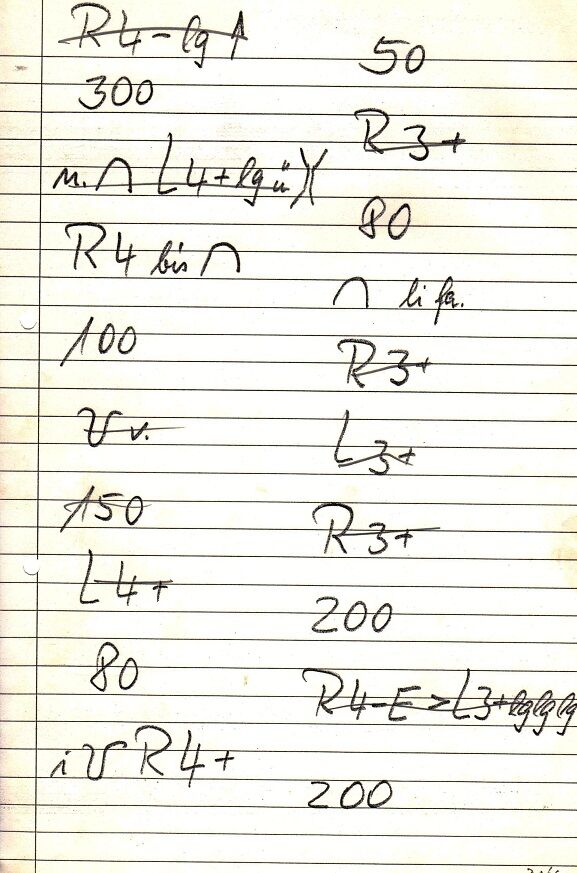 R4-lg↑
300
n.∩ L4+lgü)(
R4 bis ∩
100
v.
150
L4+
80
i R4+
50
R3+
80
∩ li fa.
R3+
L3+
R3+
200
R4-E>L3+lglglg
200